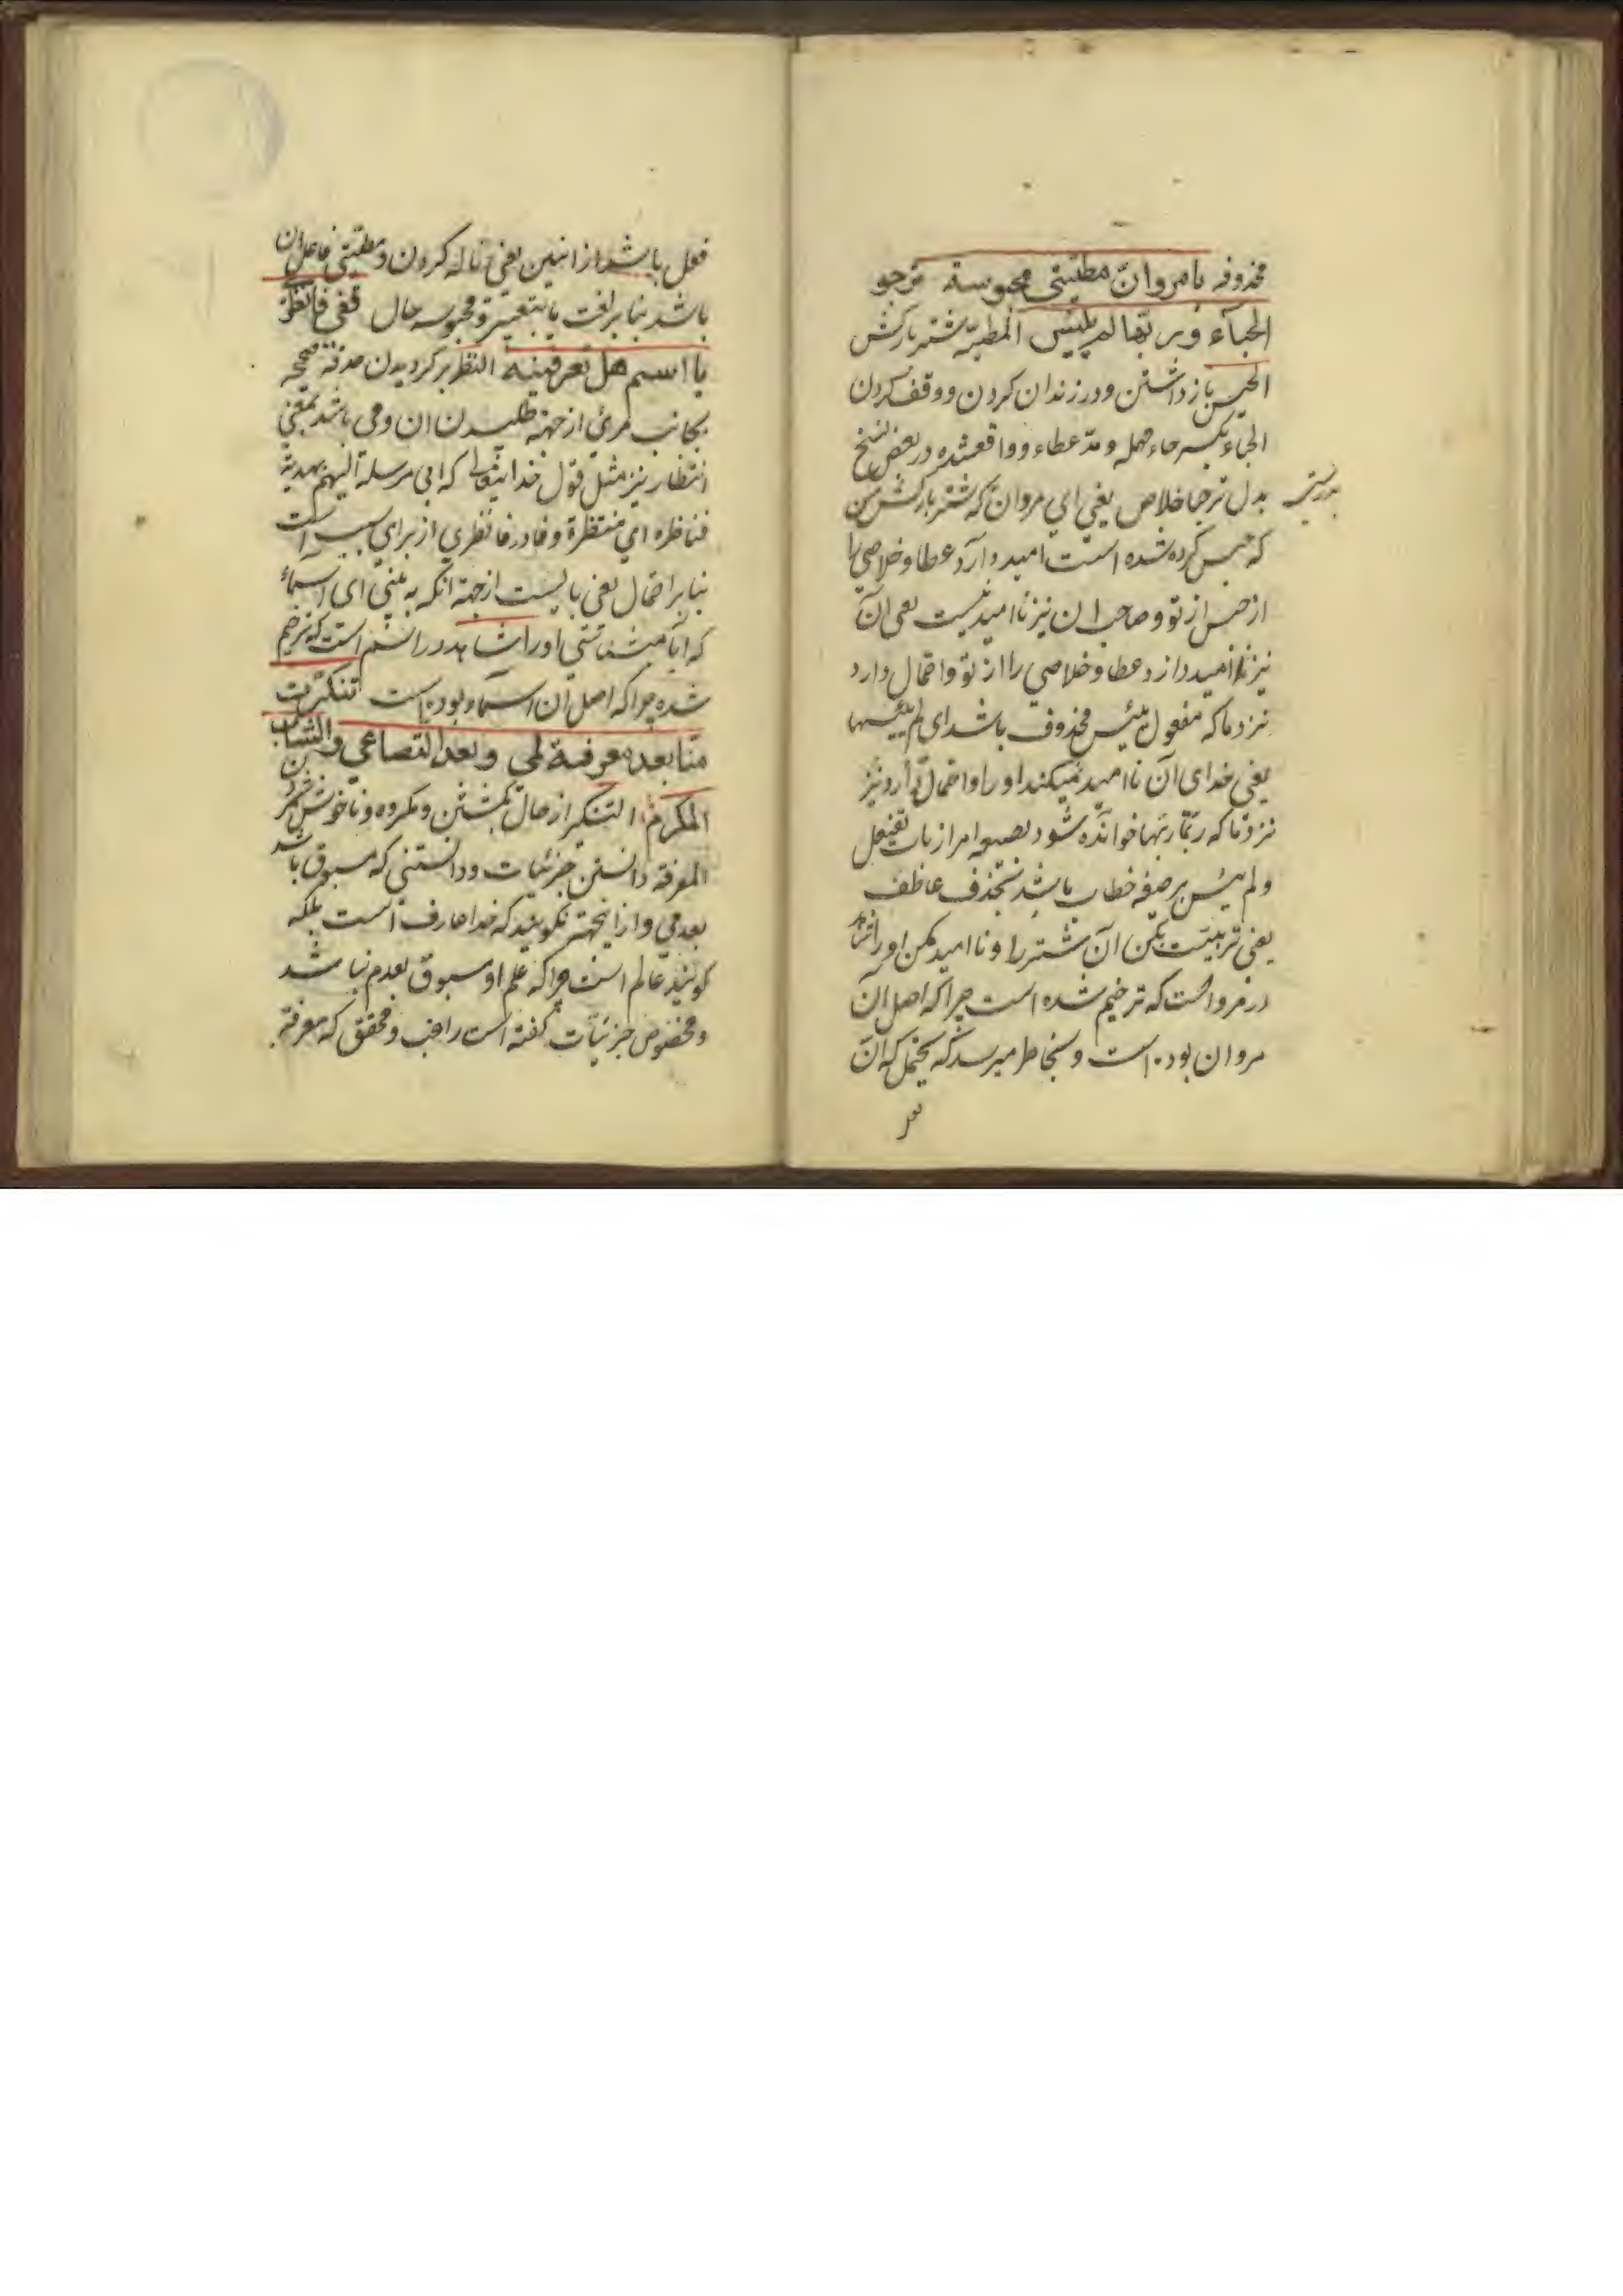 محذوفه یا مروان مطیتی محبوسة ترجو
الحباء وربها لم ییئس المطیه شتر بارکش
الحبس بازداشتن و در زندان کردن و وقف کردن
الحباء بکسر حاء مهمله و مد عطاء و واقعشده در بعض نسخ
بدل ترجبا خلاص یعنی ای مروان که شتر بارکش من
بدرستی
که حبس کرده شده است امید دارد عطا و خلاصی را
از حبس از تو و صاحب ان نیز ناامید نیست یعنی آن
نیز امید دارد عطا و خلاصی را از تو و احتمال دارد
نزد ما که مفعول ییئس محذوف باشد ای لم ییئسها
یعنی خدای آن ناامید نمیکند او را و احتمال دارد نیز
نزد ما که ربها خوانده شود بصیغه امر از باب تفعیل
و لم ییئس بر صیغه خطاب باشد بحذف عاطف
یعنی تربیت بکن آن شتر را و ناامید مکن او را
در مرو است که ترخیم شده است چرا که اصل آن
مروان بوده است و بخاطر میرسد که یحتمل که ان
فعل باشد از انین یعنی ناله کردن و مطیتی فاعل ان
باشد بنا بر لغت و محبوسه حال قفی فانظری
یا اسم هل تعرفینه النظر بر کردیدن حدقه صحیحه
بجانب مرئی از جهة طلب دیدن ان و می باشد بمعنی
انتظار نیز مثل قول خدایتعالی که انی مرسلة الیهم بهدیة
فناظره ای منتظرة و فا در فانظری از برای سببیت است
بنا بر احتمال یعنی بایست از جهة انکه به بینی ای اسماء
که ایا میشناسی او را شاهد در اسم است که ترخیم
شده چرا که اصل ان اسماء بوده است تنکرت
منا بعد معرفة لمی وبعد التصابی والشباب
المکرم التنکر از حال بکشتن و مکروه و ناخوش
المعرفه دانستن جزئیات و دانستنی که مسبوق باشد
بعدمی و از اینجهة نکویند که خدا عارف است بلکه
کویند عالم است چرا که علم او مسبوق بعدم نباشد
و مخصوص جزئیات کفته است راغب و محقق که معرفة